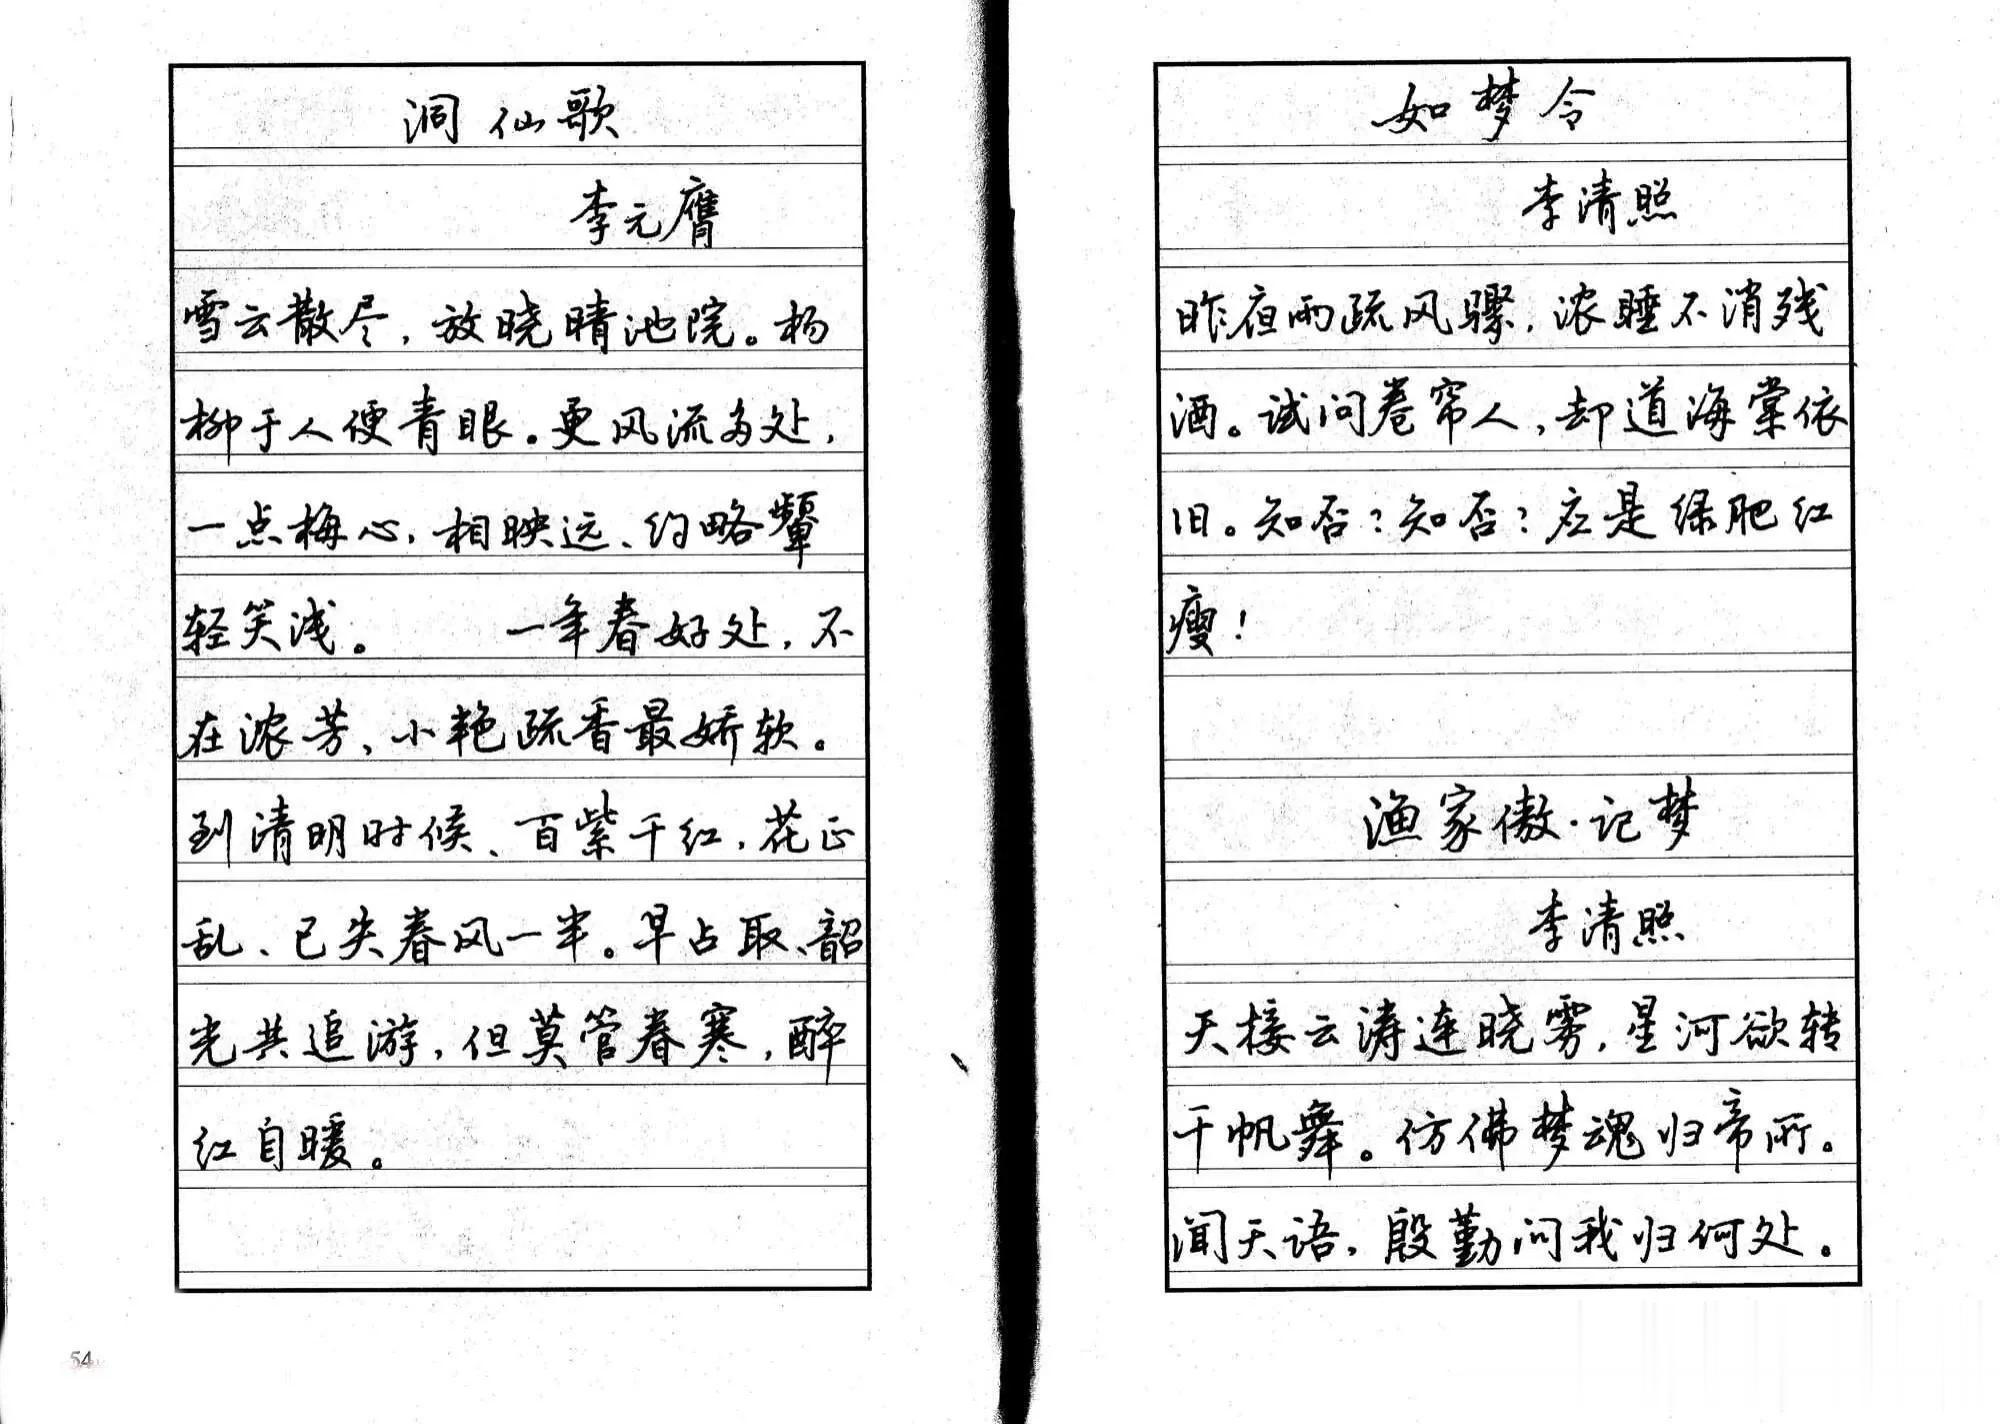 洞仙歌
李元膺
雪云散尽，放晓晴池院。杨
柳于人便青眼。更风流多处，
一点梅心，相映远、约略颦
轻笑浅。 一年春好处，不
在浓芳、小艳疏香最娇软。
到清明时候、百紫千红，花正
乱、已失春风一半。早占取、韶
光共追游，但莫管春寒，醉
红自暖。
54
如梦令
李清照
昨夜雨疏风骤，浓睡不消残
酒。试问卷帘人，却道海棠依
旧。知否？知否？应是绿肥红
瘦！
渔家傲·记梦
李清照
天接云涛连晓雾，星河欲转
千帆舞。仿佛梦魂归帝所。
闻天语，殷勤问我归何处。